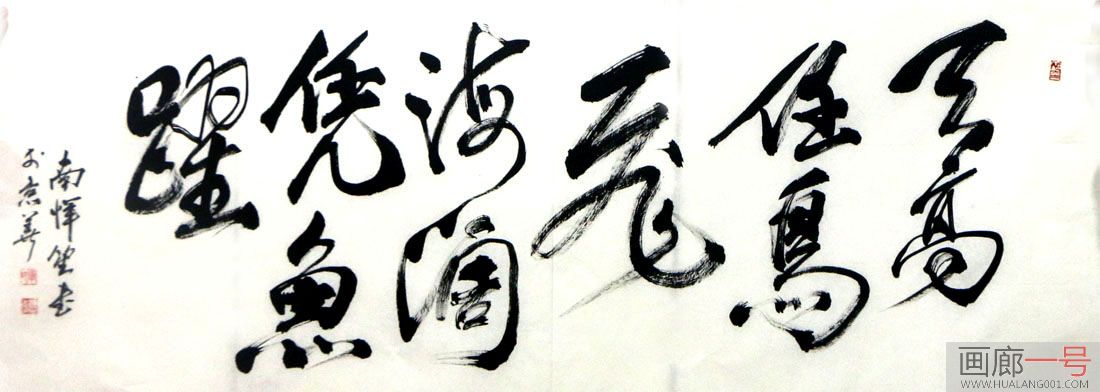 天高
任鳥
飛
海濶
凭魚
躍
南恽书
于京華
画廊一号
WWW.HUALANG001.COM